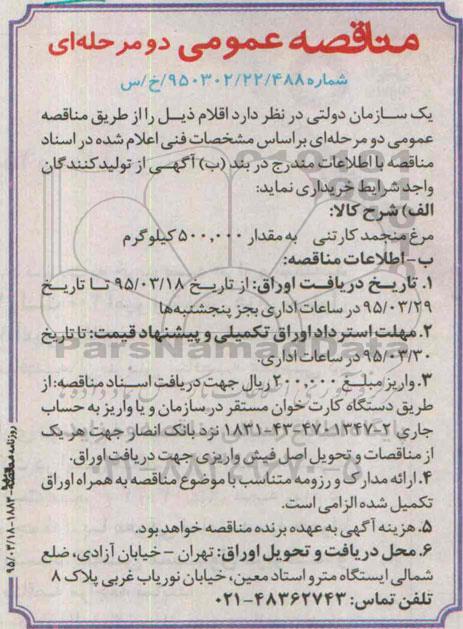 مناقصه عمومی دو مرحله‌ای
شماره ۹۵۰۳۰۲/۲۲/۴۸۸/خ/س
یک سازمان دولتی در نظر دارد اقلام ذیل را از طریق مناقصه
عمومی دو مرحله‌ای براساس مشخصات فنی اعلام شده در اسناد
مناقصه با اطلاعات مندرج در بند (ب) آگهی از تولیدکنندگان
واجد شرایط خریداری نماید:
الف) شرح کالا:
مرغ منجمد کارتنی به مقدار ۵۰۰,۰۰۰ کیلوگرم
ب- اطلاعات مناقصه:
۱. تاریخ دریافت اوراق: از تاریخ ۹۵/۰۳/۱۸ تا تاریخ
۹۵/۰۳/۲۹ در ساعات اداری بجز پنجشنبه‌ها
۲. مهلت استرداد اوراق تکمیلی و پیشنهاد قیمت: تا تاریخ
۹۵/۰۳/۳۰ در ساعات اداری.
۳. واریز مبلغ ۲۰۰,۰۰۰ ریال جهت دریافت اسناد مناقصه: از
طریق دستگاه کارت خوان مستقر در سازمان و یا واریز به حساب
جاری ۲-۱۳۴۷-۴۷-۴۳-۱۸۳۱ نزد بانک انصار جهت هر یک
از مناقصات و تحویل اصل فیش واریزی جهت دریافت اوراق.
۴. ارائه مدارک و رزومه متناسب با موضوع مناقصه به همراه اوراق
تکمیل شده الزامی است.
۵. هزینه آگهی به عهده برنده مناقصه خواهد بود.
۶. محل دریافت و تحویل اوراق: تهران - خیابان آزادی، ضلع
شمالی ایستگاه مترو استاد معین، خیابان نوریاب غربی پلاک ۸
تلفن تماس: ۴۸۳۶۲۷۴۳-۰۲۱
روزنامه مناقصه-۱۸۸۳-۹۵/۰۳/۱۸
ParsNamadData
۰۲۱-۸۸۳۴۹۶۷۰-۵